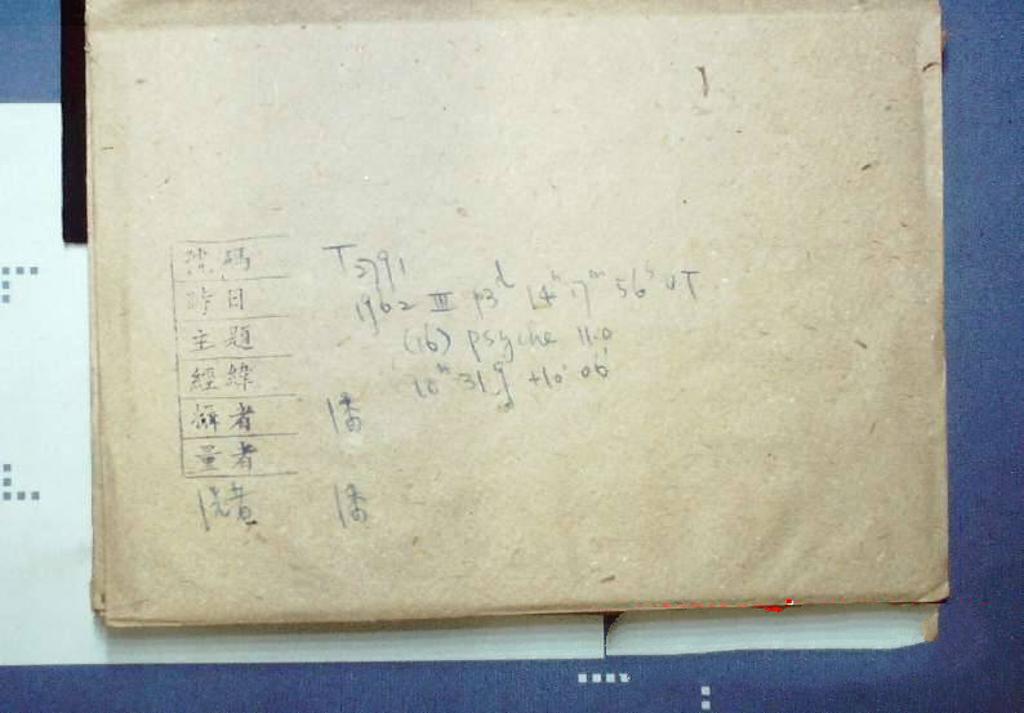 號碼 T2791
時日 1962 III 13ᵈ 14ʰ 17ᵐ 56ˢ UT
主題 (16) psyche 11.0
經緯 10ʰ 31.9 +10° 06'
攝者 潘
量者
洗者 潘